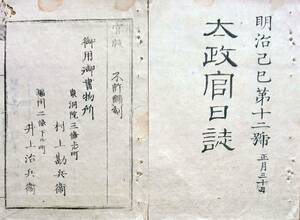 明治己巳第十二號
正月三十日
太政官日誌
官版
不許翻刻
御用御書物所
東洞院三條上ル町
村上勘兵衛
堀川二條下ル町
井上治兵衛